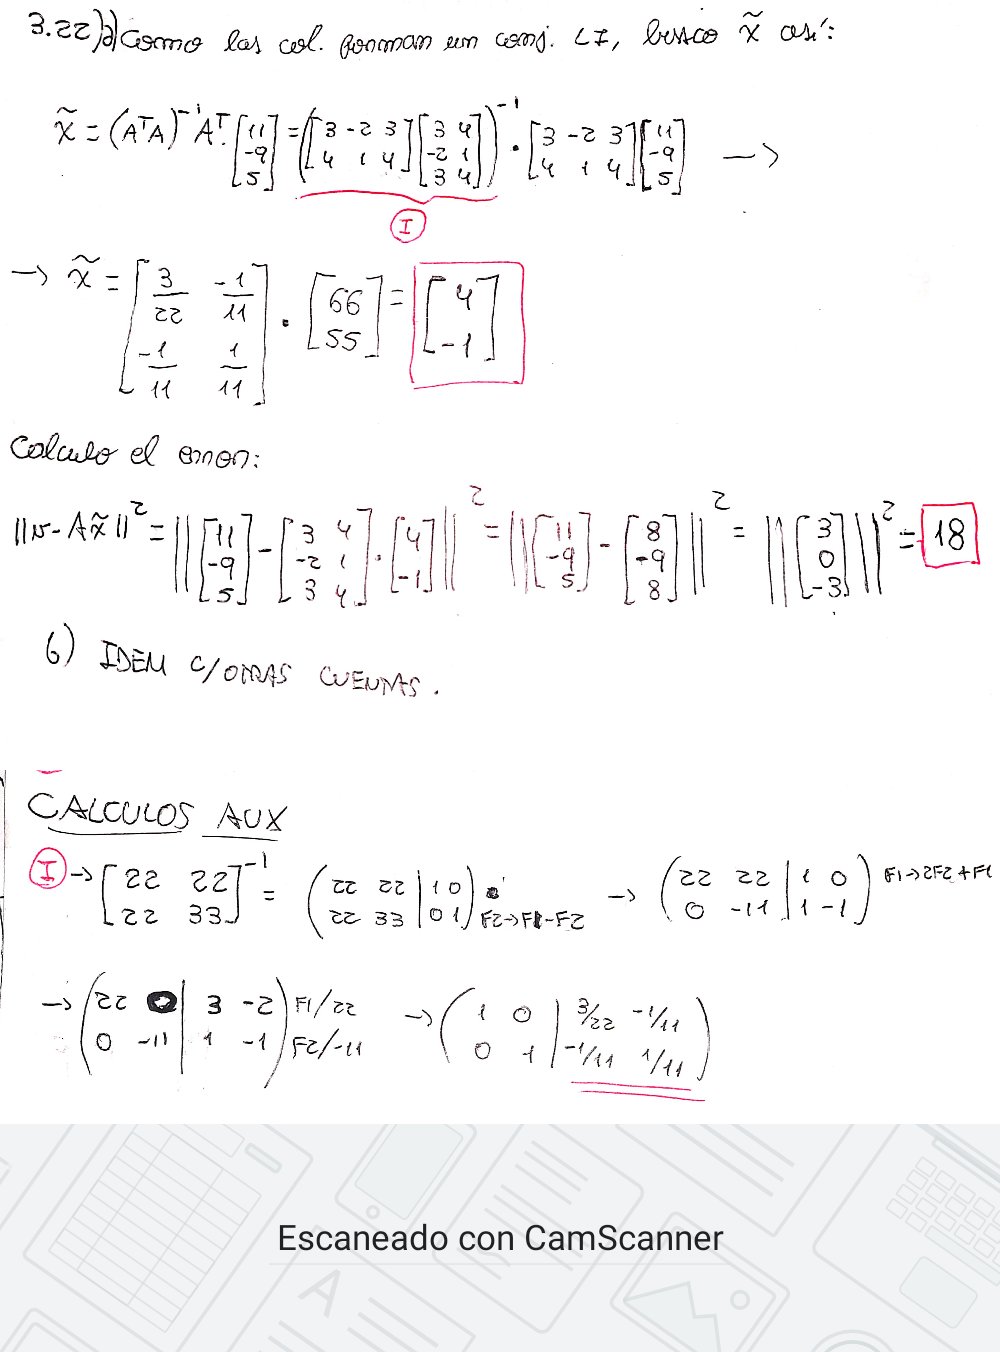 3.22) a) Como las col. forman un conj. LI, busco x̃ así:
x̃ = (AᵀA)⁻¹ Aᵀ. [11 -9 5] = ([3 -2 3; 4 1 4] [3 4; -2 1; 3 4])⁻¹ · [3 -2 3; 4 1 4] [11 -9 5] →
I
→ x̃ = [3/22 -1/11; -1/11 1/11] · [66 55] = [4 -1]
Calculo el error:
||v - Ax̃||² = ||[11 -9 5] - [3 4; -2 1; 3 4] · [4 -1]||² = ||[11 -9 5] - [8 -9 8]||² = ||[3 0 -3]||² = 18
b) IDEM C/OTRAS CUENTAS.
CALCULOS AUX
I → [22 22; 22 33]⁻¹ = (22 22 | 1 0; 22 33 | 0 1) F2→F1-F2 → (22 22 | 1 0; 0 -11 | 1 -1) F1→2F2+F1
→ (22 0 | 3 -2; 0 -11 | 1 -1) F1/22 F2/-11 → (1 0 | 3/22 -1/11; 0 1 | -1/11 1/11)
Escaneado con CamScanner